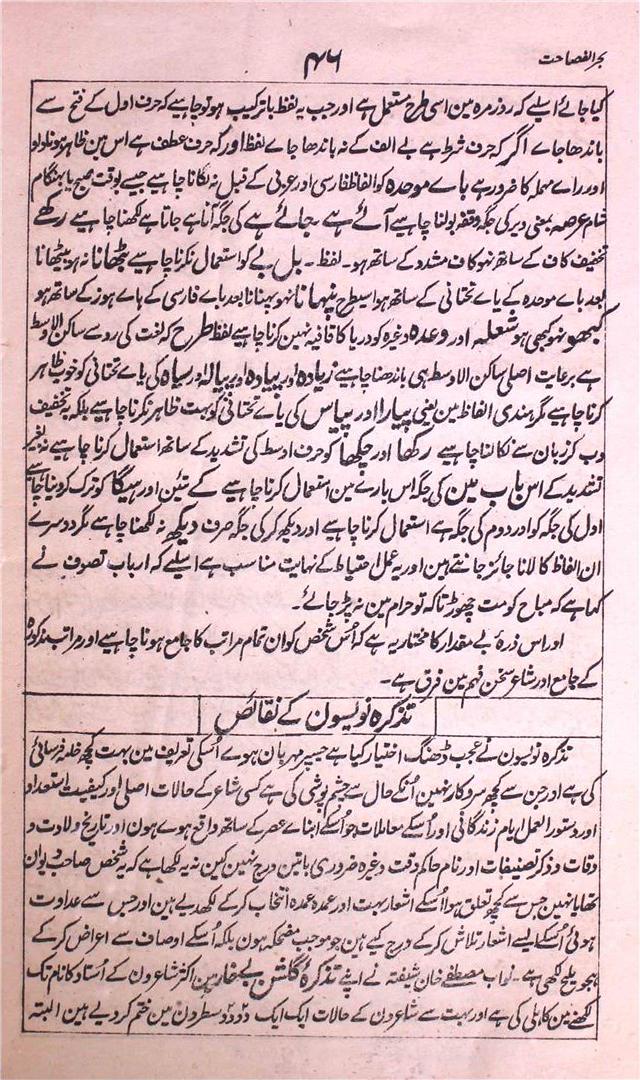 بحر الفصاحت
۴۶
کیا جائے اسلیے کہ روزمرہ مین اسی طرح مستعمل ہے اور جب یہ لفظ باترکیب ہو تو چاہیے کہ حرف اول کے فتح سے
باندھا جاے اگر کہ حرف شرط ہے بے الف کے نہ باندھا جاے لفظ اور کہ حرف عطف ہے اس مین ظاہر ہونا واو
اور راے مہملہ کا ضرور ہے باے موحدہ کو الفاظ فارسی اور عربی کے قبل نہ لگانا چاہیے جیسے بوقت صبح یا بہنگام
شام عرصہ بمعنی دیر کی جگہ وقفہ بولنا چاہیے آئے ہے ۔ جائے ہے کی جگہ آتا ہے جاتا ہے لکھنا چاہیے رکھے
تخفیف کاف کے ساتھ نہو کاف مشدد کے ساتھ ہو ۔ لفظ ۔ بل بے کو استعمال نکرنا چاہیے بٹھانا نہ ہو بیٹھانا
بعد باے موحدہ کے یاے تحتانی کے ساتھ ہو اسیطرح پنہانا نہو پہنانا بعد باے فارسی کے ہاے ہوز کے ساتھ ہو
کبھو نہو کبھی ہو شعلہ اور وعدہ وغیرہ کو دریا کا قافیہ نہین کرنا چاہیے لفظ طرح کہ لغت کی رو سے ساکن الاوسط
ہے برعایت اصلی ساکن الاوسط ہی باندھنا چاہیے زیادہ اور پیادہ اور پیالہ اور سیاہ کی یاے تحتانی کو خوب ظاہر
کرنا چاہیے مگر ہندی الفاظ مین یعنی پیارا اور پیاس کی یاے تحتانی کو بہت ظاہر نکرنا چاہیے بلکہ بہ تخفیف
وب کر زبان سے نکالنا چاہیے رکھا اور چکھا کو حرف اوسط کی تشدید کے ساتھ استعمال کرنا چاہیے نہ بغیر
تشدید کے اس باب مین کی جگہ اس بارے مین استعمال کرنا چاہیے کے تئین اور ہیگا کو ترک کر دینا چاہیے
اول کی جگہ کو اور دوم کی جگہ ہے استعمال کرنا چاہیے اور دیکھ کر کی جگہ صرف دیکھ نہ لکھنا چاہیے مگر دوسرے
ان الفاظ کا لانا جائز جانتے ہین اور یہ عمل احتیاط کے نہایت مناسب ہے اسلیے کہ ارباب تصوف نے
کہا ہے کہ مباح کو مت چھوڑ تاکہ تو حرام مین نہ پڑ جائے ۔
اور اس ذرۂ بے مقدار کا مختار یہ ہے کہ اُس شخص کو ان تمام مراتب کا جامع ہونا چاہیے اور مراتب مذکورہ
کے جامع اور شاعر سخن فہم مین فرق ہے ۔
تذکرہ نویسون کے نقائص
تذکرہ نویسون نے عجب ڈھنگ اختیار کیا ہے جسپر مہربان ہوے اُسکی تعریف مین بہت کچھ خامہ فرسائی
کی ہے اور جن سے کچھ سروکار نہین اُنکے حال سے چشم پوشی کی ہے کسی شاعر کے حالات اصلی اور کیفیت استعداد
اور دستور العمل ایام زندگانی اور اُسکے معاملات جو اُسکے ابناے عصر کے ساتھ واقع ہوے ہون اور تاریخ ولادت و
وفات و ذکر تصنیفات اور نام حاکم وقت وغیرہ ضروری باتین درج نہین کین نہ یہ لکھا ہے کہ یہ شخص صاحب دیوان
تھا یا نہین جس سے کچھ تعلق ہوا اُسکے اشعار بہت اور عمدہ عمدہ انتخاب کرکے لکھدیے ہین اور جس سے عداوت
ہوئی اُسکے ایسے اشعار تلاش کرکے درج کیے ہین جو موجب مضحکہ ہون بلکہ اُسکے اوصاف سے اعراض کرکے
ہجو ملیح لکھی ہے ۔ نواب مصطفے خان شیفتہ نے اپنے تذکرۂ گلشن بےخار مین اکثر شاعرون کے اُستاد کا نام تک
لکھنے مین کاہلی کی ہے اور بہت سے شاعرون کے حالات ایک ایک دو دو سطرون مین ختم کر دیے ہین البتہ